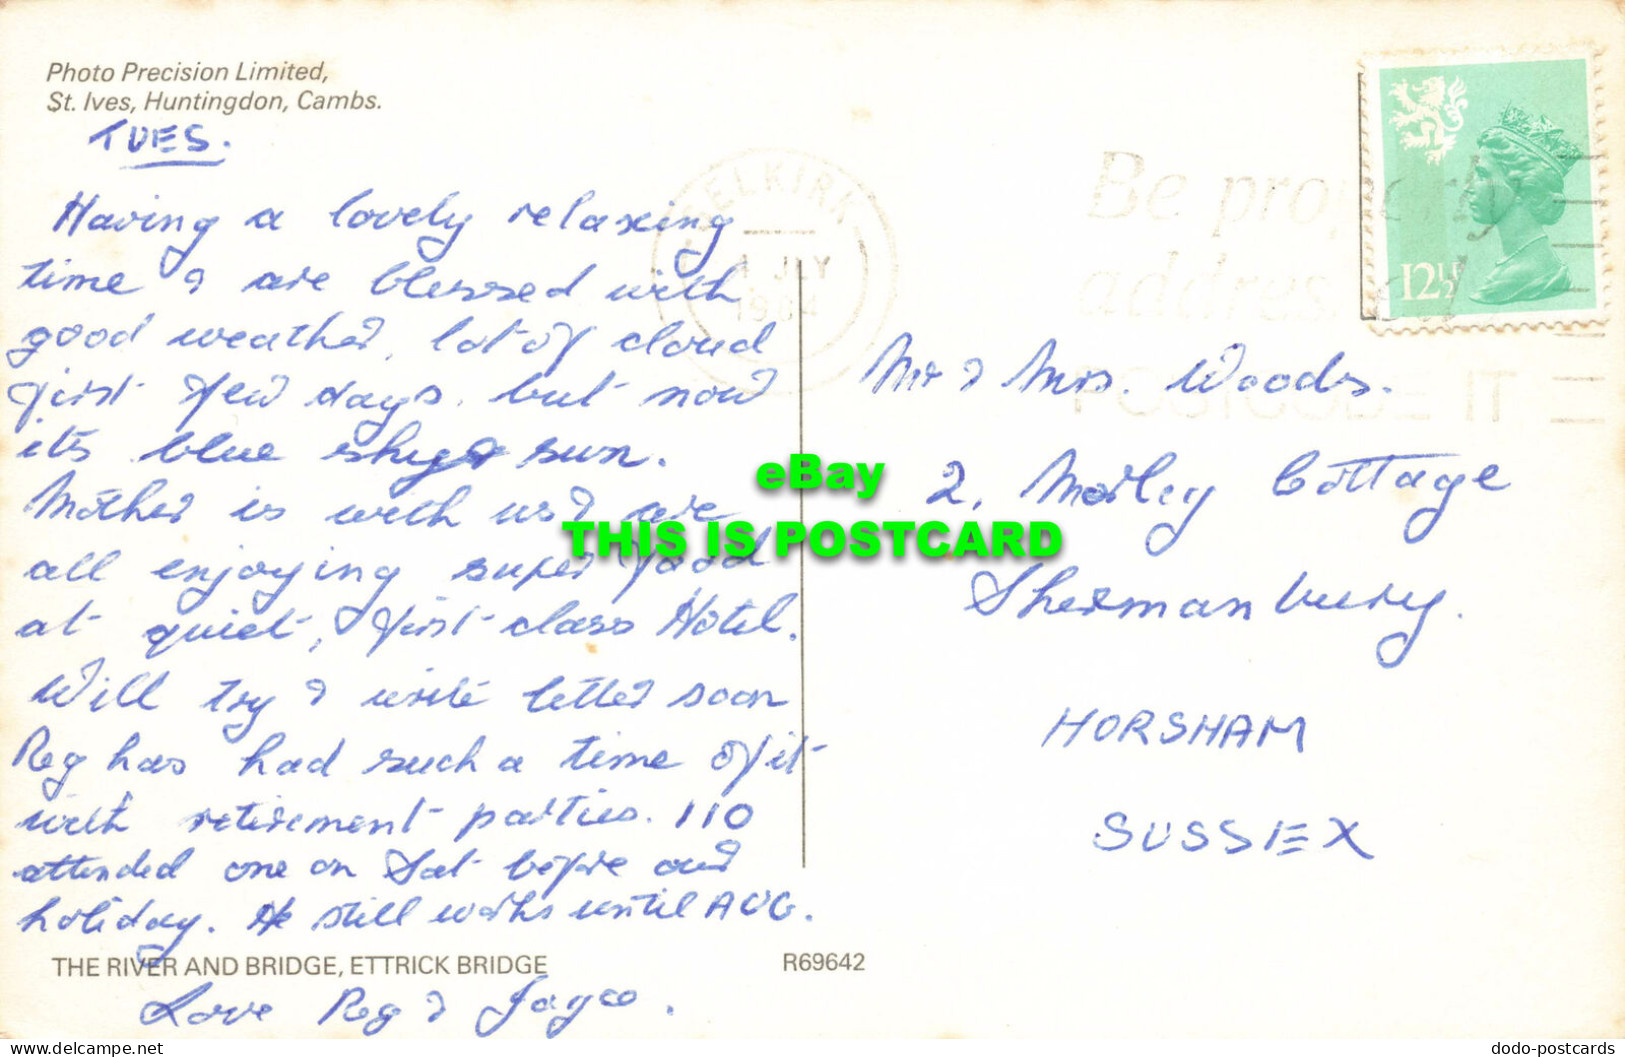 Photo Precision Limited,
St. Ives, Huntingdon, Cambs.
TUES.
Having a lovely relaxing
time & are blessed with
good weather, lot of cloud
first few days, but now
its blue sky & sun.
Mother is with us & are
all enjoying super food
at quiet, first-class Hotel.
Will try & write letter soon
Reg has had such a time of it
with retirement parties. 110
attended one on Sat before our
holiday. He still works until AUG.
THE RIVER AND BRIDGE, ETTRICK BRIDGE
R69642
Love Reg & Joyce.
SELKIRK
JLY
1984
Be properly
addressed
POSTCODE IT
12½
Mr & Mrs. Woods.
2, Morley Cottage
Shermanbury.
HORSHAM
SUSSEX
eBay
THIS IS POSTCARD
© delcampe.net
dodo-postcards